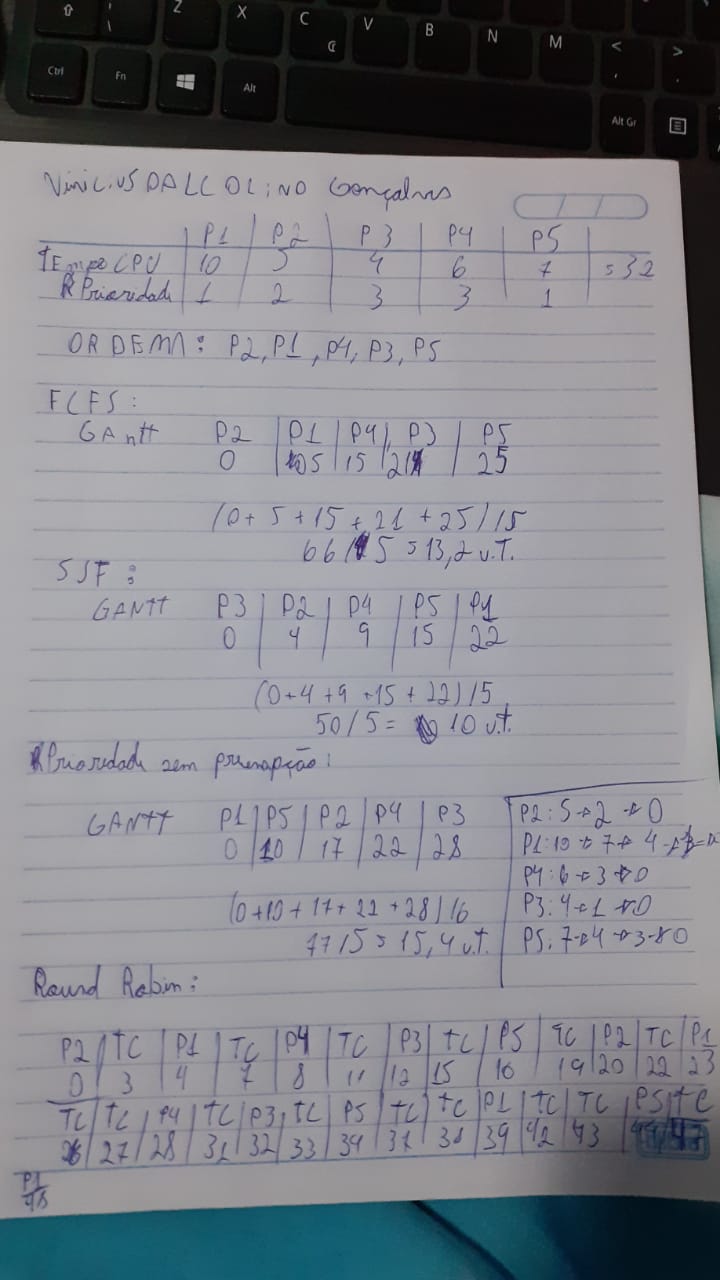 Z X C V B N M < , > .
Ctrl Fn Alt Alt Gr
Vinicius DALCOLINO Gonçalves
P1 P2 P3 P4 P5
TEmpo CPU 10 5 4 6 7 = 32
Prioridade 1 2 3 3 1
ORDEM: P2, P1, P4, P3, P5
FCFS:
GAntt P2 P1 P4 P3 P5
0 5 15 21 25
(0+5+15+21+25)/5
66/5 = 13,2 u.T.
SJF:
GANTT P3 P2 P4 P5 P1
0 4 9 15 22
(0+4+9+15+22)/5
50/5 = 10 u.t.
Prioridade sem preempção:
GANTT P1 P5 P2 P4 P3
0 10 17 22 28
(0+10+17+22+28)/6
77/5 = 15,4 u.t.
P2: 5 → 2 → 0
P1: 10 → 7 → 4 →
P4: 6 → 3 → 0
P3: 4 → 1 → 0
P5: 7 → 4 → 3 → 0
Round Robin:
P2 TC P1 TC P4 TC P3 TC P5 TC P2 TC P1
0 3 4 7 8 11 12 15 16 19 20 22 23
TC TC P4 TC P3 TC P5 TC TC P1 TC TC P5 TC
26 27 28 31 32 33 34 37 38 39 42 43 44 47
P1
48